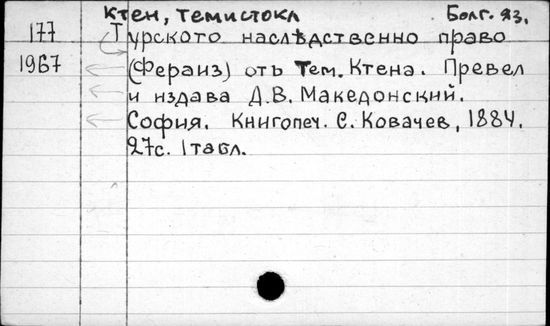 Ктен, Темистокл Болг. яз.
177 Турското наслѣдственно право
1967 (Фераиз) отъ Тем. Ктена. Превел
и издава Д.В. Македонский.
София. Книгопеч. С. Ковачев, 1884.
27с. 1 табл.